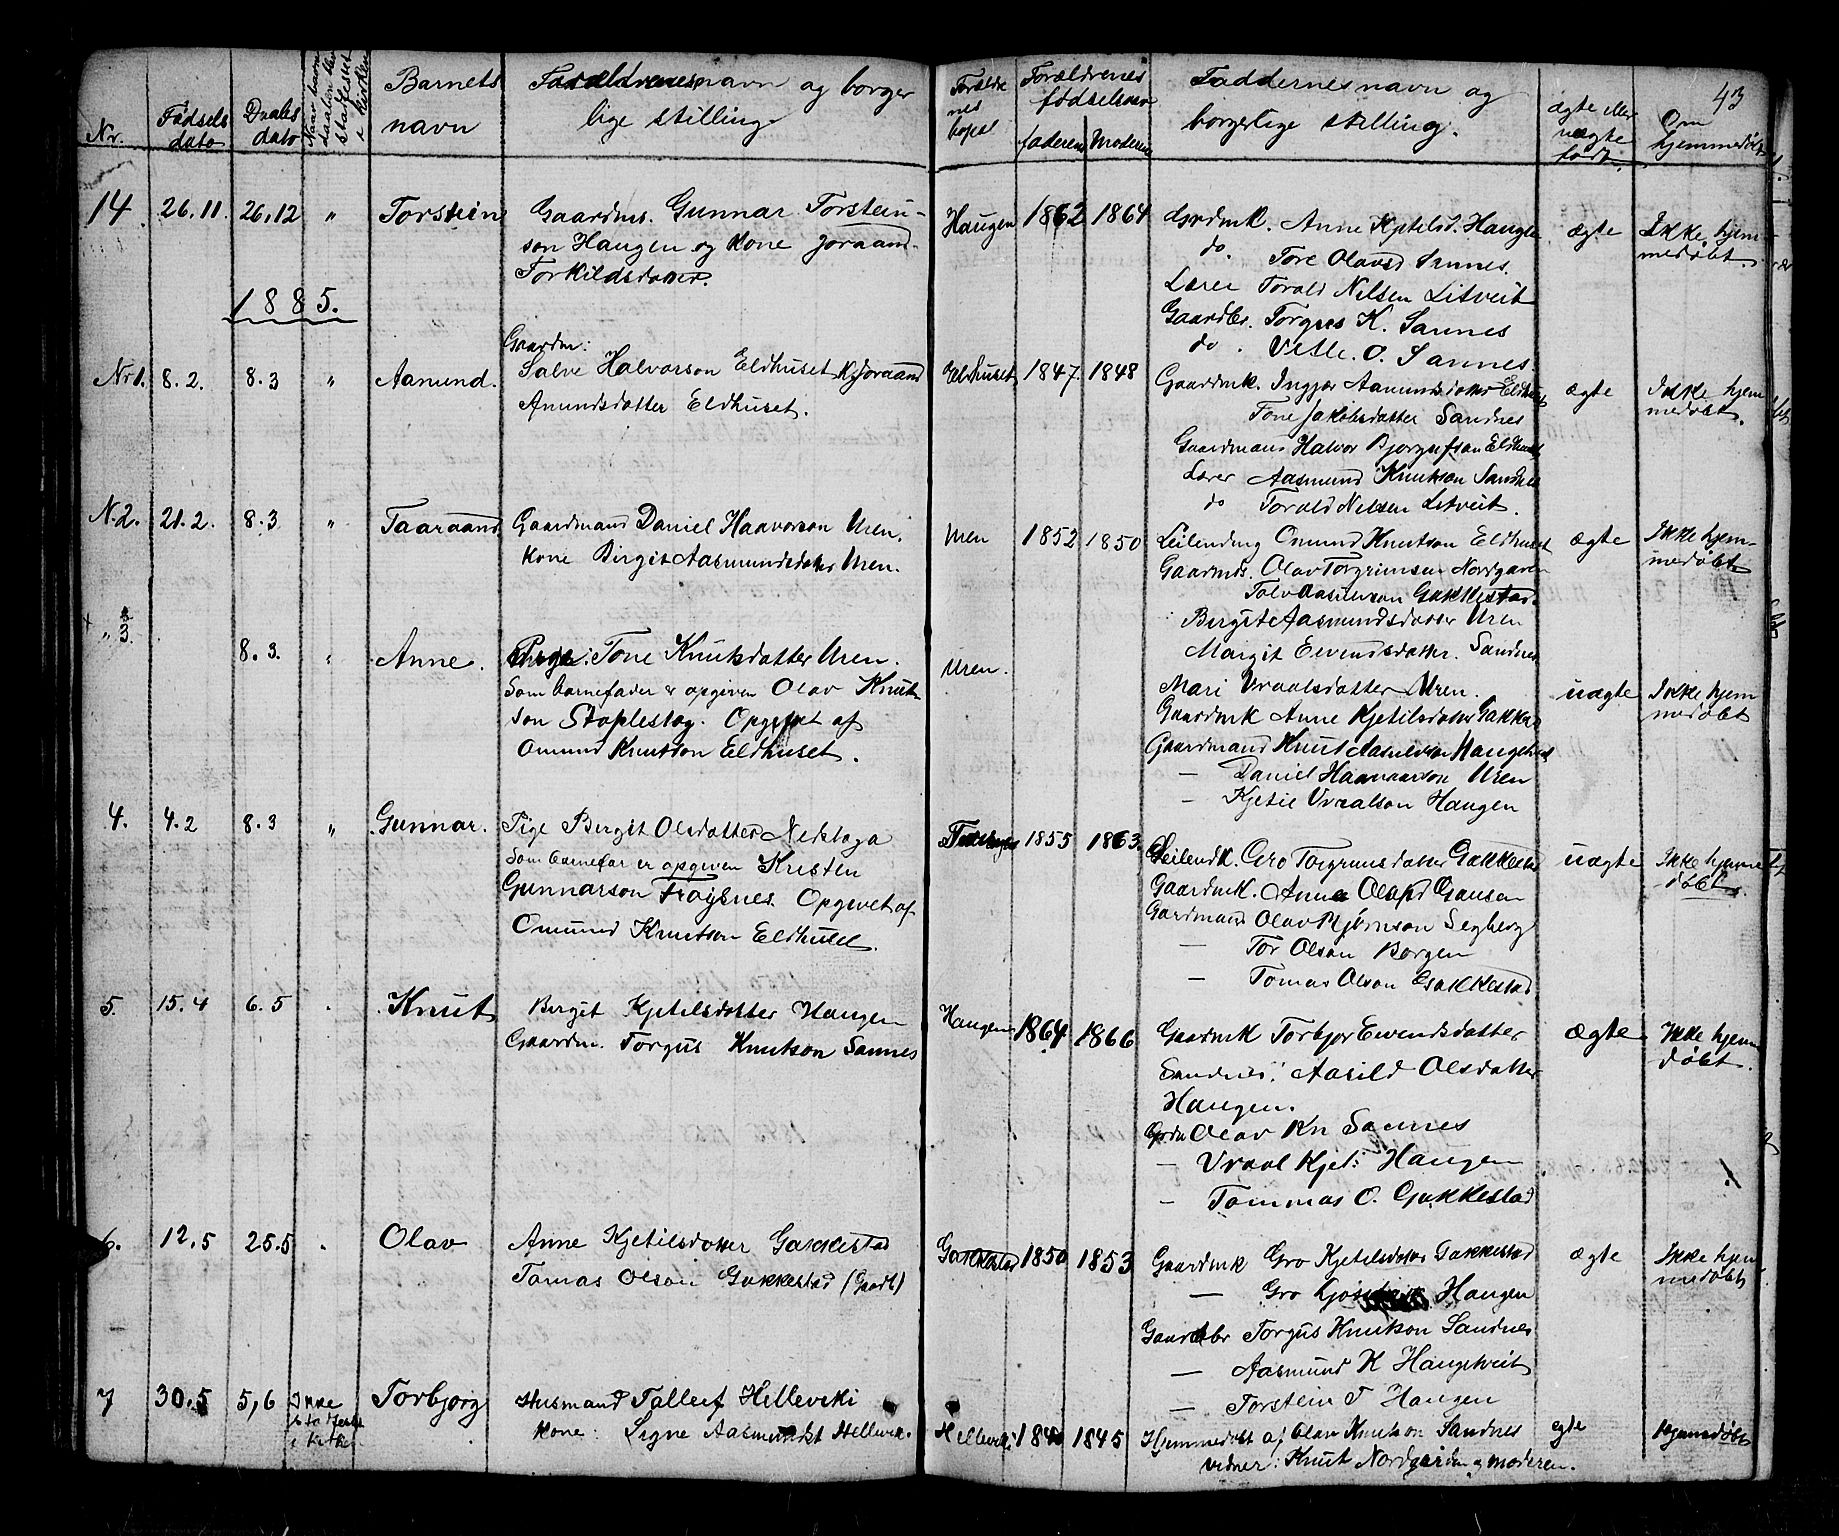 43
Nr.
Fødsels dato
Daabs dato
Barnets navn
Forældrenes navn og borgerlige stilling
Forældrenes bopæl
Forældrenes fødselsaar
faderens
Moderens
Faddernes navn og borgerlige stilling.
ægte eller uægte født.
Om hjemmedøbt
14
26.11.
26.12
"
Torstein
Gaardms. Gunnar Torstein-
son Haugen og kone Joraand
Torkildsdatter.
Haugen
1862
1864
Grdmk. Anne Kjetilsd. Haugen
do. Tore Olavsd Sannes.
Lærer Torald Nilsen Litveit
Gaardbr. Torgus K. Sannes
do. Vetle. O. Sannes
ægte
Ikke hjem-
medøbt.
1885.
Nr1.
8.2.
8.3
"
Aamund.
Gaardm:
Salve Halvorson Eldhuset K. Joraand
Amundsdatter Eldhuset.
Eldhuset
1847.
1848
Gaardmk. Ingjør Aamundsdatter Eldhuset
Tone Jakobsdatter Sandnes
Gaardmans Halvor Bjorgufson Eldhuset
Lærer Aasmund Knutson Sandnes
do Torald Nilsen Litveit.
ægte
Ikke hjem
medøbt.
N.2.
21.2.
8.3
"
Taaraand
Gaardmand Daniel Haavorson Uren.
kone Birgit Aasmundsdatter Uren.
Uren
1852
1850
Leilending Omund Knutson Eldhuset
Gaardmds. Olav Torgrimsen Nordgaren
Aasmundson Gakkestad.
Birgite Aasmundsdatter Uren
Margit Eivendsdatter. Sandnes
ægte
Ikke hjem-
medøbt
" 3.
8.3.
"
Anne.
Pige: Tone Knutsdatter Uren.
Som barnefader er opgiven Olav Knut
son Staplestog. Opgivet af
Omund Knutson Eldhuset.
Uren.
Mari Vraalsdatter Uren.
Gaardmk Anne Kjetilsdatter Gakkes
Gaardmand Knut Haugtveit
— Daniel Haavaarson Uren
— Kjetil Vraalson Haugen
uægte
Ikke hjem
medøbt
4.
4.2
8.3
"
Gunnar.
Pige Bergit Olsdatter Nedstoga
Som barnefar er opgiven Kristen
Gunnarson Frøysnes. Opgivet af
Omund Knutson Eldhuset.
1855
1863.
Leilendk. Gro Torgrimsdatter Gakkestad
Gaardmk. Anne Olavsd
Gardmand Olav Bjørnson Segberg
— Tor Olson Borgen
— Tomas Olson Gakkestad
uægte
Ikke hjemme
døbt.
5.
15.4
6.5
.
Knut
Bergit Kjetilsdatter Haugen
Gaardm. Torgus Knutson Sannes
Haugen
1864
1866
Gaardmk Torbjor Eivendsdatter
Sandnes. Aasild Olsdatter
Haugen.
Grdm Olav Kn Sannes
— Vraal Kjet: Haugen
— Tommas O. Gakkestad
ægte
Ikke hjem
døbt.
6.
12.5
25.5
.
Olav
Anne Kjetilsdatter Gakkestad
Tomas Olson Gakkestad (Gardb)
Gakkestad
1850
1853
Gaardmk Gro Kjetilsdatter Gakkestad
— Gro Haugen
Gaardbr Torgus Knutson Sandnes
— Aasmund K Haugtveit
— Torstein T Haugen
ægte
Ikke hjem
medøbt
7
30.5
5,6
Ikke
stadfestet
i kirken
Torbjorg
Husmand Tallef Helleviki
kone: Signe Aasmundst Hellevik.
Helleviki
1845
Hjemmedøbt af Olav Knutson Sandnes
vidner: Knut Nordgarden og moderen.
egte
Hjemmedøbt